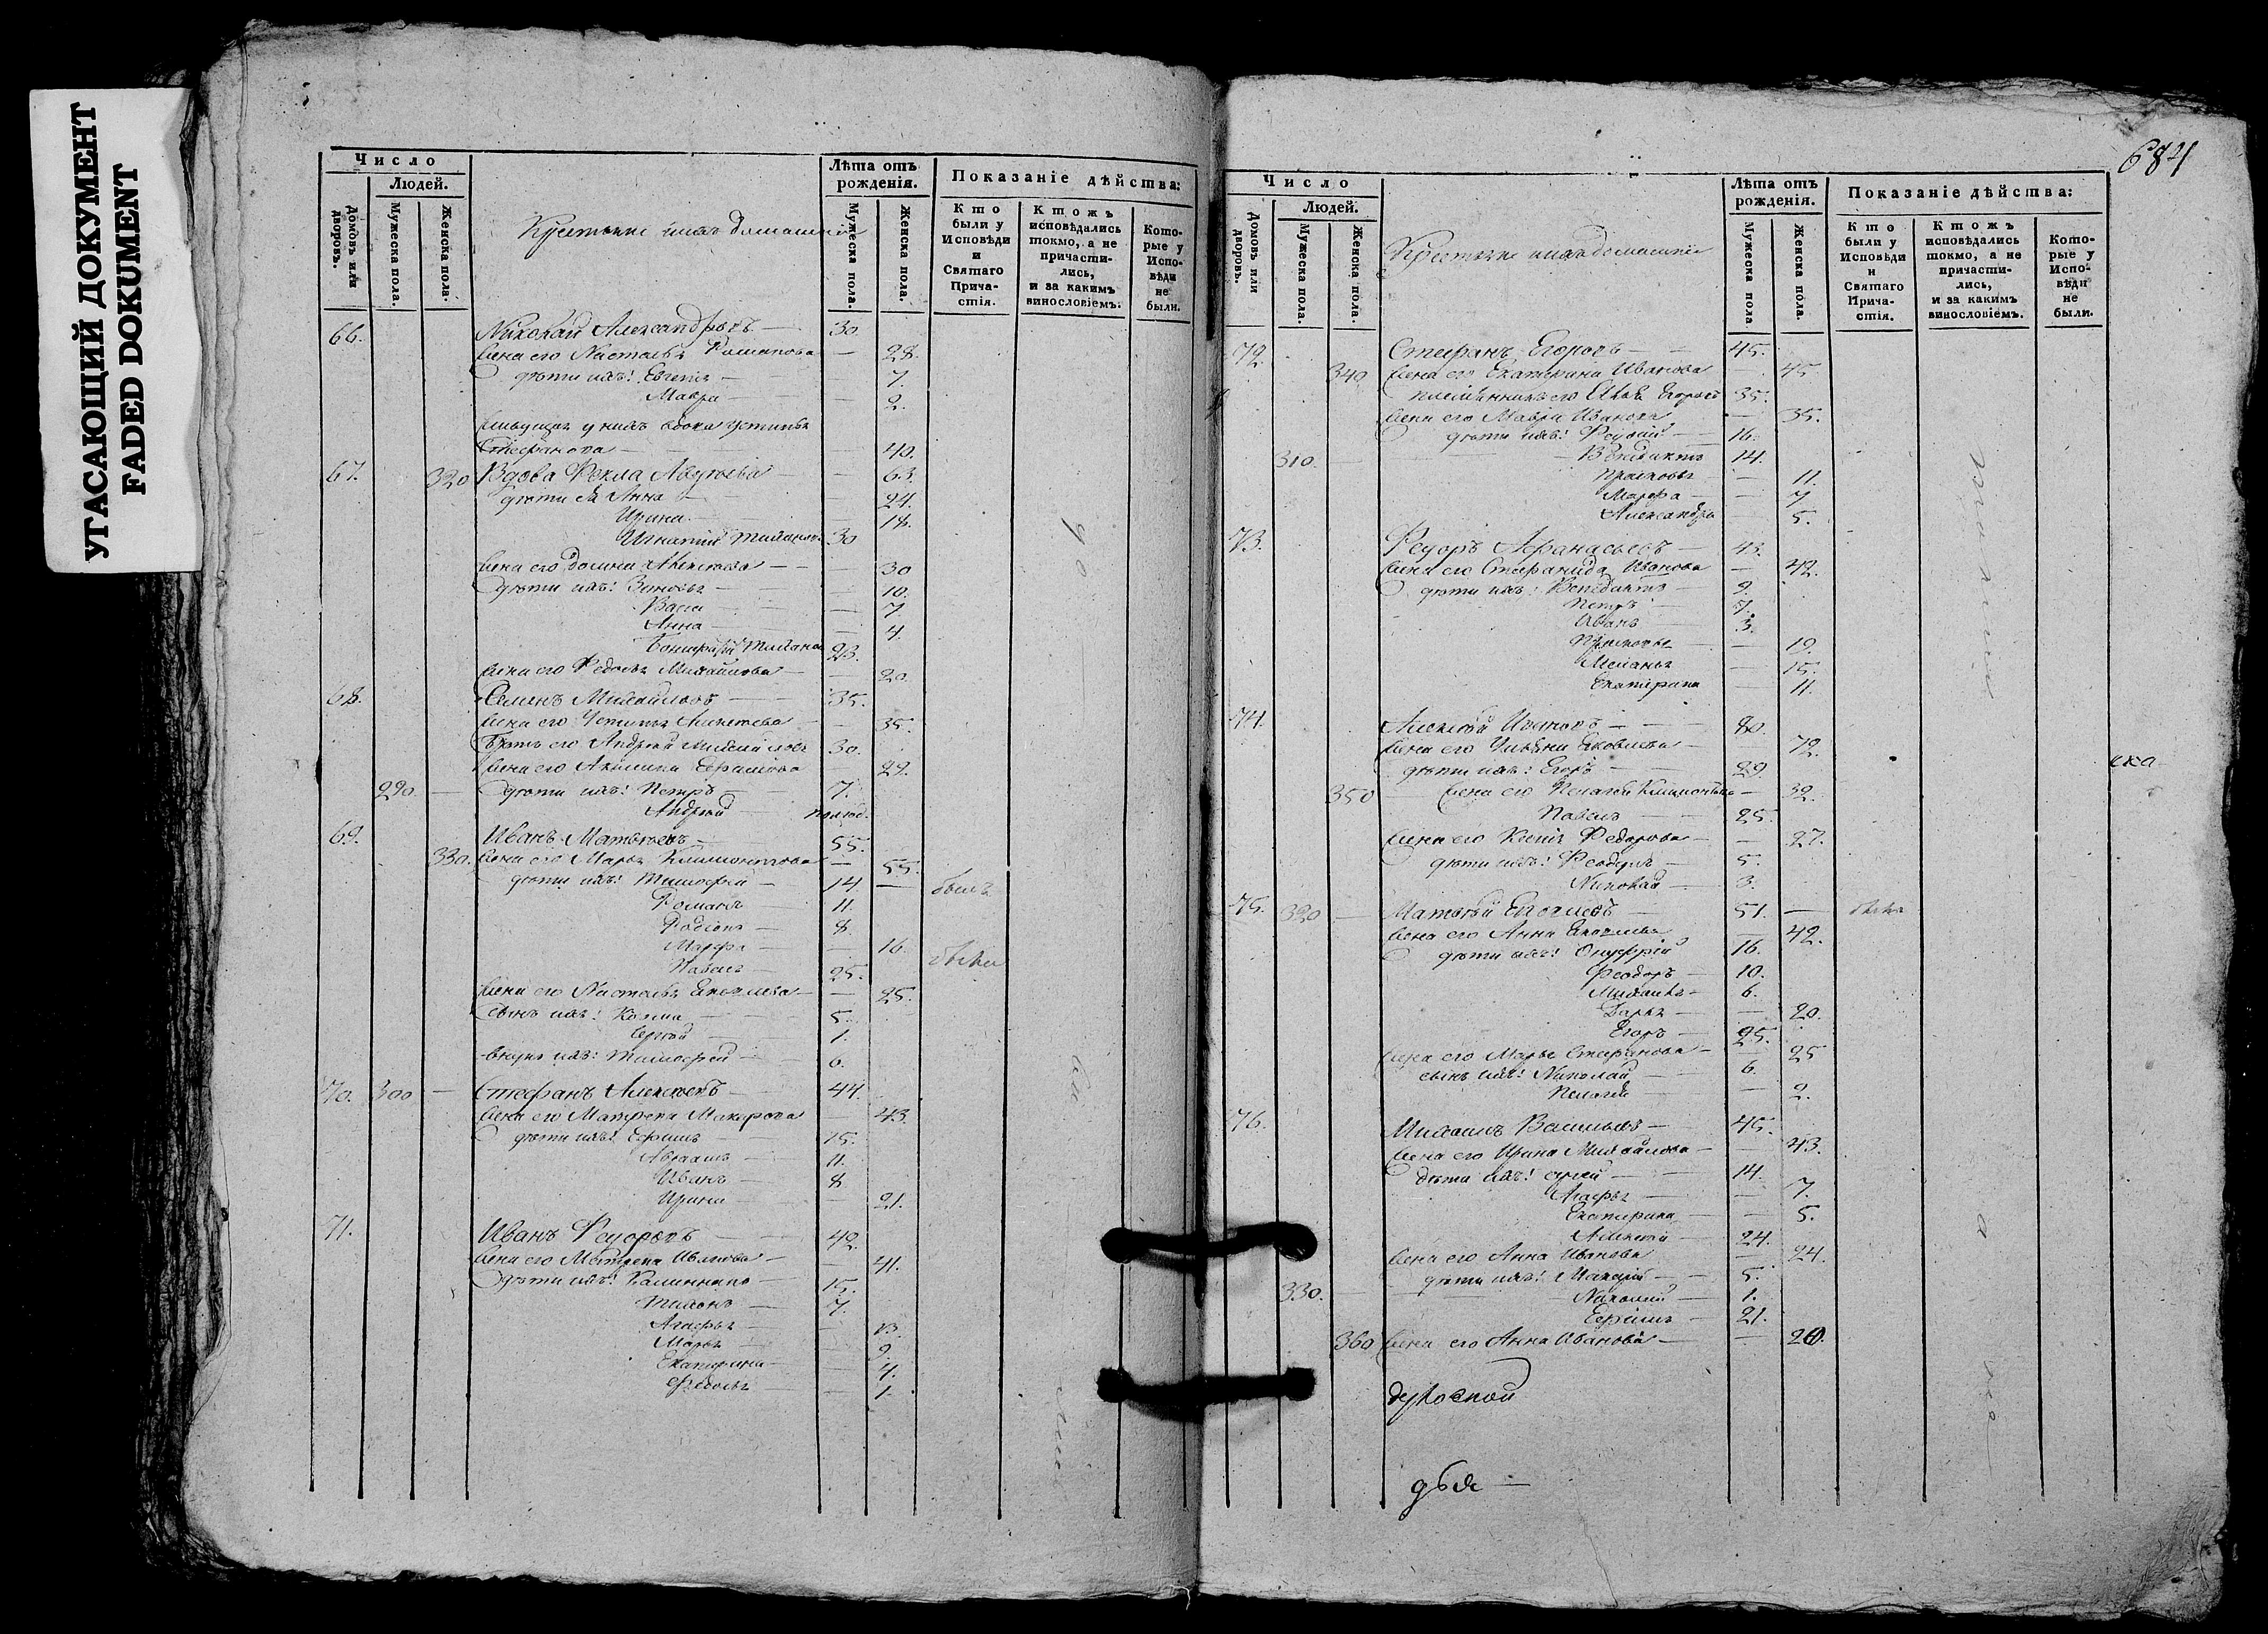 УГАСАЮЩИЙ ДОКУМЕНТ
FADED DOKUMENT
Число
Людей.
Домовъ или дворовъ.
Мужеска пола.
Женска пола.
Крестьяне и ихъ домашніе
Лѣта отъ рожденія.
Мужеска пола.
Женска пола.
Показаніе дѣйства:
Кто были у Исповѣди и Святаго Причастія.
Ктожъ исповѣдались токмо, а не причастились, и за какимъ винословіемъ.
Которые у Исповѣди не были.
66. Николай Александровъ — 30.
жена его Настасья Романова — 28.
дѣти ихъ: Евгенія — 7.
Мавра — 2.
живущая у нихъ вдова Устинья
Стефанова — 40.
67. 320 Вдова Фекла Авдѣева 63.
дѣти ея Анна — 24.
Ирина — 18.
Игнатій 30
жена его 30
дѣти ихъ: Зиновья — 10.
Васса — 7
Анна — 4.
23.
жена его Федосья Михайлова — 20.
68. Семенъ Михайловъ — 35.
жена его Устинья 35.
братъ его Андрей Михайловъ 30.
жена его Акилина 29.
290. — дѣти ихъ: Петръ — 7.
Андрей — полгод.
69. Иванъ Матвѣевъ — 55.
330. жена его Марья Климонтова — 55.
дѣти ихъ: Тимофей — 14. — былъ
Романъ 11.
Родіонъ — 8.
Марфа — 16. была
Павелъ — 25.
жена его Настасья 25.
сынъ ихъ: Козма — 5.
Сергей — 1.
внукъ ихъ: Тимофей — 6.
70. 300 — Стефанъ Алексѣевъ — 44.
жена его Матрена Макарова — 43.
дѣти ихъ: Ефимъ — 15.
Авраамъ — 11.
Иванъ — 8
Ирина — 21.
71. Иванъ Федоровъ — 42.
жена его Матрена 41.
дѣти ихъ: Калинникъ — 15.
7.
Агафья — 13.
Марья — 9.
Екатерина — 4.
Федосья — 1.
684
Число
Людей.
Домовъ или дворовъ.
Мужеска пола.
Женска пола.
Крестьяне и ихъ домашніе
Лѣта отъ рожденія.
Мужеска пола.
Женска пола.
Показаніе дѣйства:
Кто были у Исповѣди и Святаго Причастія.
Ктожъ исповѣдались токмо, а не причастились, и за какимъ винословіемъ.
Которые у Исповѣди не были.
72. Стефанъ Егоровъ — 45.
340. жена его Екатерина Иванова — 45.
племянникъ его Егоровъ 35.
жена его Мавра Иванова — 35.
дѣти ихъ: 16.
310. — Венедиктъ 14.
Прасковья — 11.
Марфа — 7
Александра — 5.
73. Федоръ Афанасьевъ — 43.
жена его Стефанида Иванова — 42.
дѣти ихъ: Венедиктъ — 9.
Петръ — 7.
Иванъ — 3.
Прасковья — 19.
Меланья — 15.
Екатерина — 11.
74. Алексѣй Ивановъ — 80.
жена его Ульяна Яковлева — 72.
дѣти ихъ: Егоръ — 29.
350 жена его Пелагея 32.
Павелъ — 25.
жена его Ксенія Федорова — 27.
дѣти ихъ: Феодулъ — 5.
Николай — 3.
75. 320 — Матвѣй 51. — былъ
жена его Анна 42.
дѣти ихъ: Онуфрій 16.
Феодоръ — 10.
Михаилъ — 6.
Дарья — 20.
Егоръ — 25.
жена его Марья Стефанова — 25
сынъ ихъ: Николай — 6.
Пелагея — 2.
76. Михаилъ Васильевъ — 45.
жена его Ирина Михайлова — 43.
дѣти ихъ: 14.
Агафья — 7.
Екатерина — 5.
Алексѣй — 24.
жена его Анна Иванова — 24.
дѣти ихъ: Макарій — 5.
330. — Николай — 1.
Ефимъ — 21.
360 жена его Анна Иванова — 20.
духовной
дѣя —